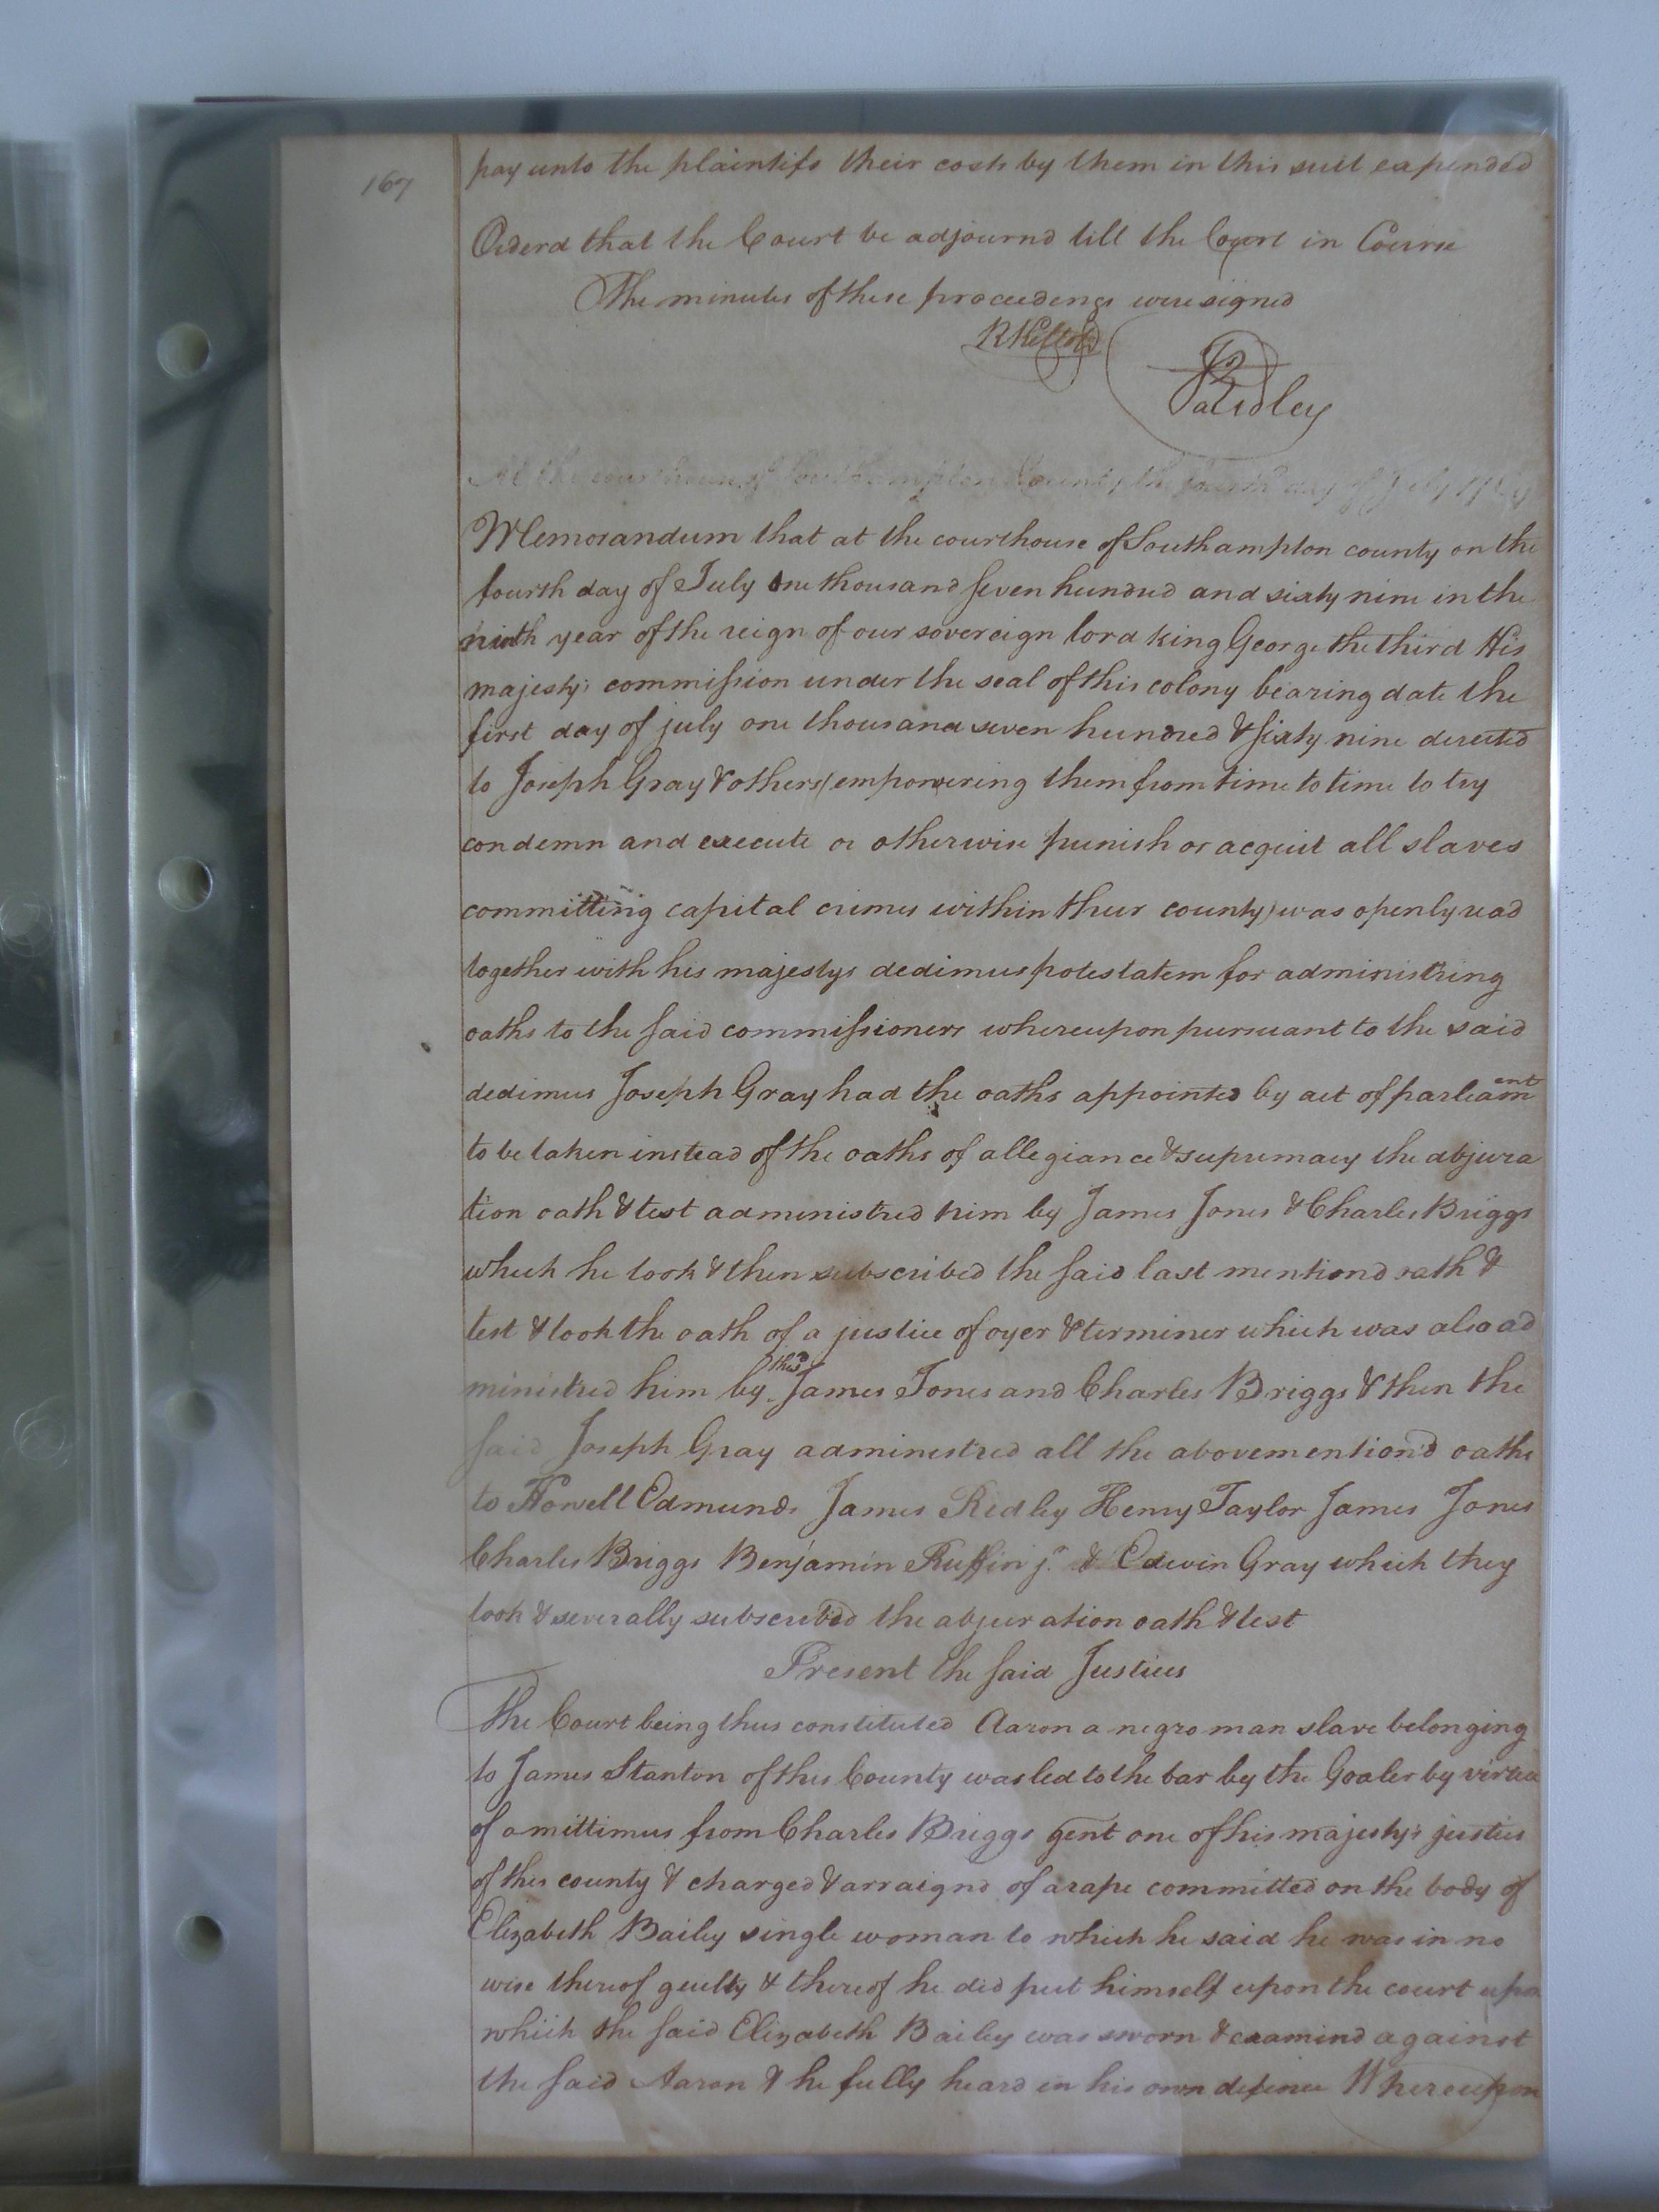 167
pay unto the plaintifs their costs by them in this suit expended
Orderd that the Court be adjournd till the Court in Course
The minutes of these proceedings were signed
R Kello
J Ridley
At the courthouse of Southampton County the fourth day of July 1769
Memorandum that at the courthouse of Southampton county on the
fourth day of July One thousand seven hundred and sixty nine in the
ninth year of the reign of our sovereign lord king George the third His
majesty's commission under the seal of this colony bearing date the
first day of july one thousand seven hundred & sixty nine directed
to Joseph Gray & others (empowering them from time to time to try
condemn and execute or otherwise punish or acquit all slaves
committing capital crimes within their county) was openly read
together with his majestys dedimus potestatem for administring
oaths to the said commissioners whereupon pursuant to the said
dedimus Joseph Gray had the oaths appointed by act of parliament
to be taken instead of the oaths of allegiance & supremacy the abjura
tion oath & test administred him by James Jones & Charles Briggs
which he took & then subscribed the said last mentiond oath &
test & took the oath of a justice of oyer & terminer which was also ad
ministred him by the sd James Jones and Charles Briggs & then the
said Joseph Gray administred all the abovemention'd oaths
to Howell Edmunds James Ridley Henry Taylor James Jones
Charles Briggs Benjamin Ruffin jr. & Edwin Gray which they
took & severally subscribed the abjuration oath & test
Present the said Justices
The Court being thus constituted Aaron a negro man slave belonging
to James Stanton of this County was led to the bar by the Goaler by virtue
of a mittimus from Charles Briggs gent one of his majesty's justices
of this county & charged & arraignd of a rape committed on the body of
Elizabeth Bailey single woman to which he said he was in no
wise thereof guilty & thereof he did put himself upon the court upon
which the said Elizabeth Bailey was sworn & examind against
the said Aaron & he fully heard in his own defence Whereupon